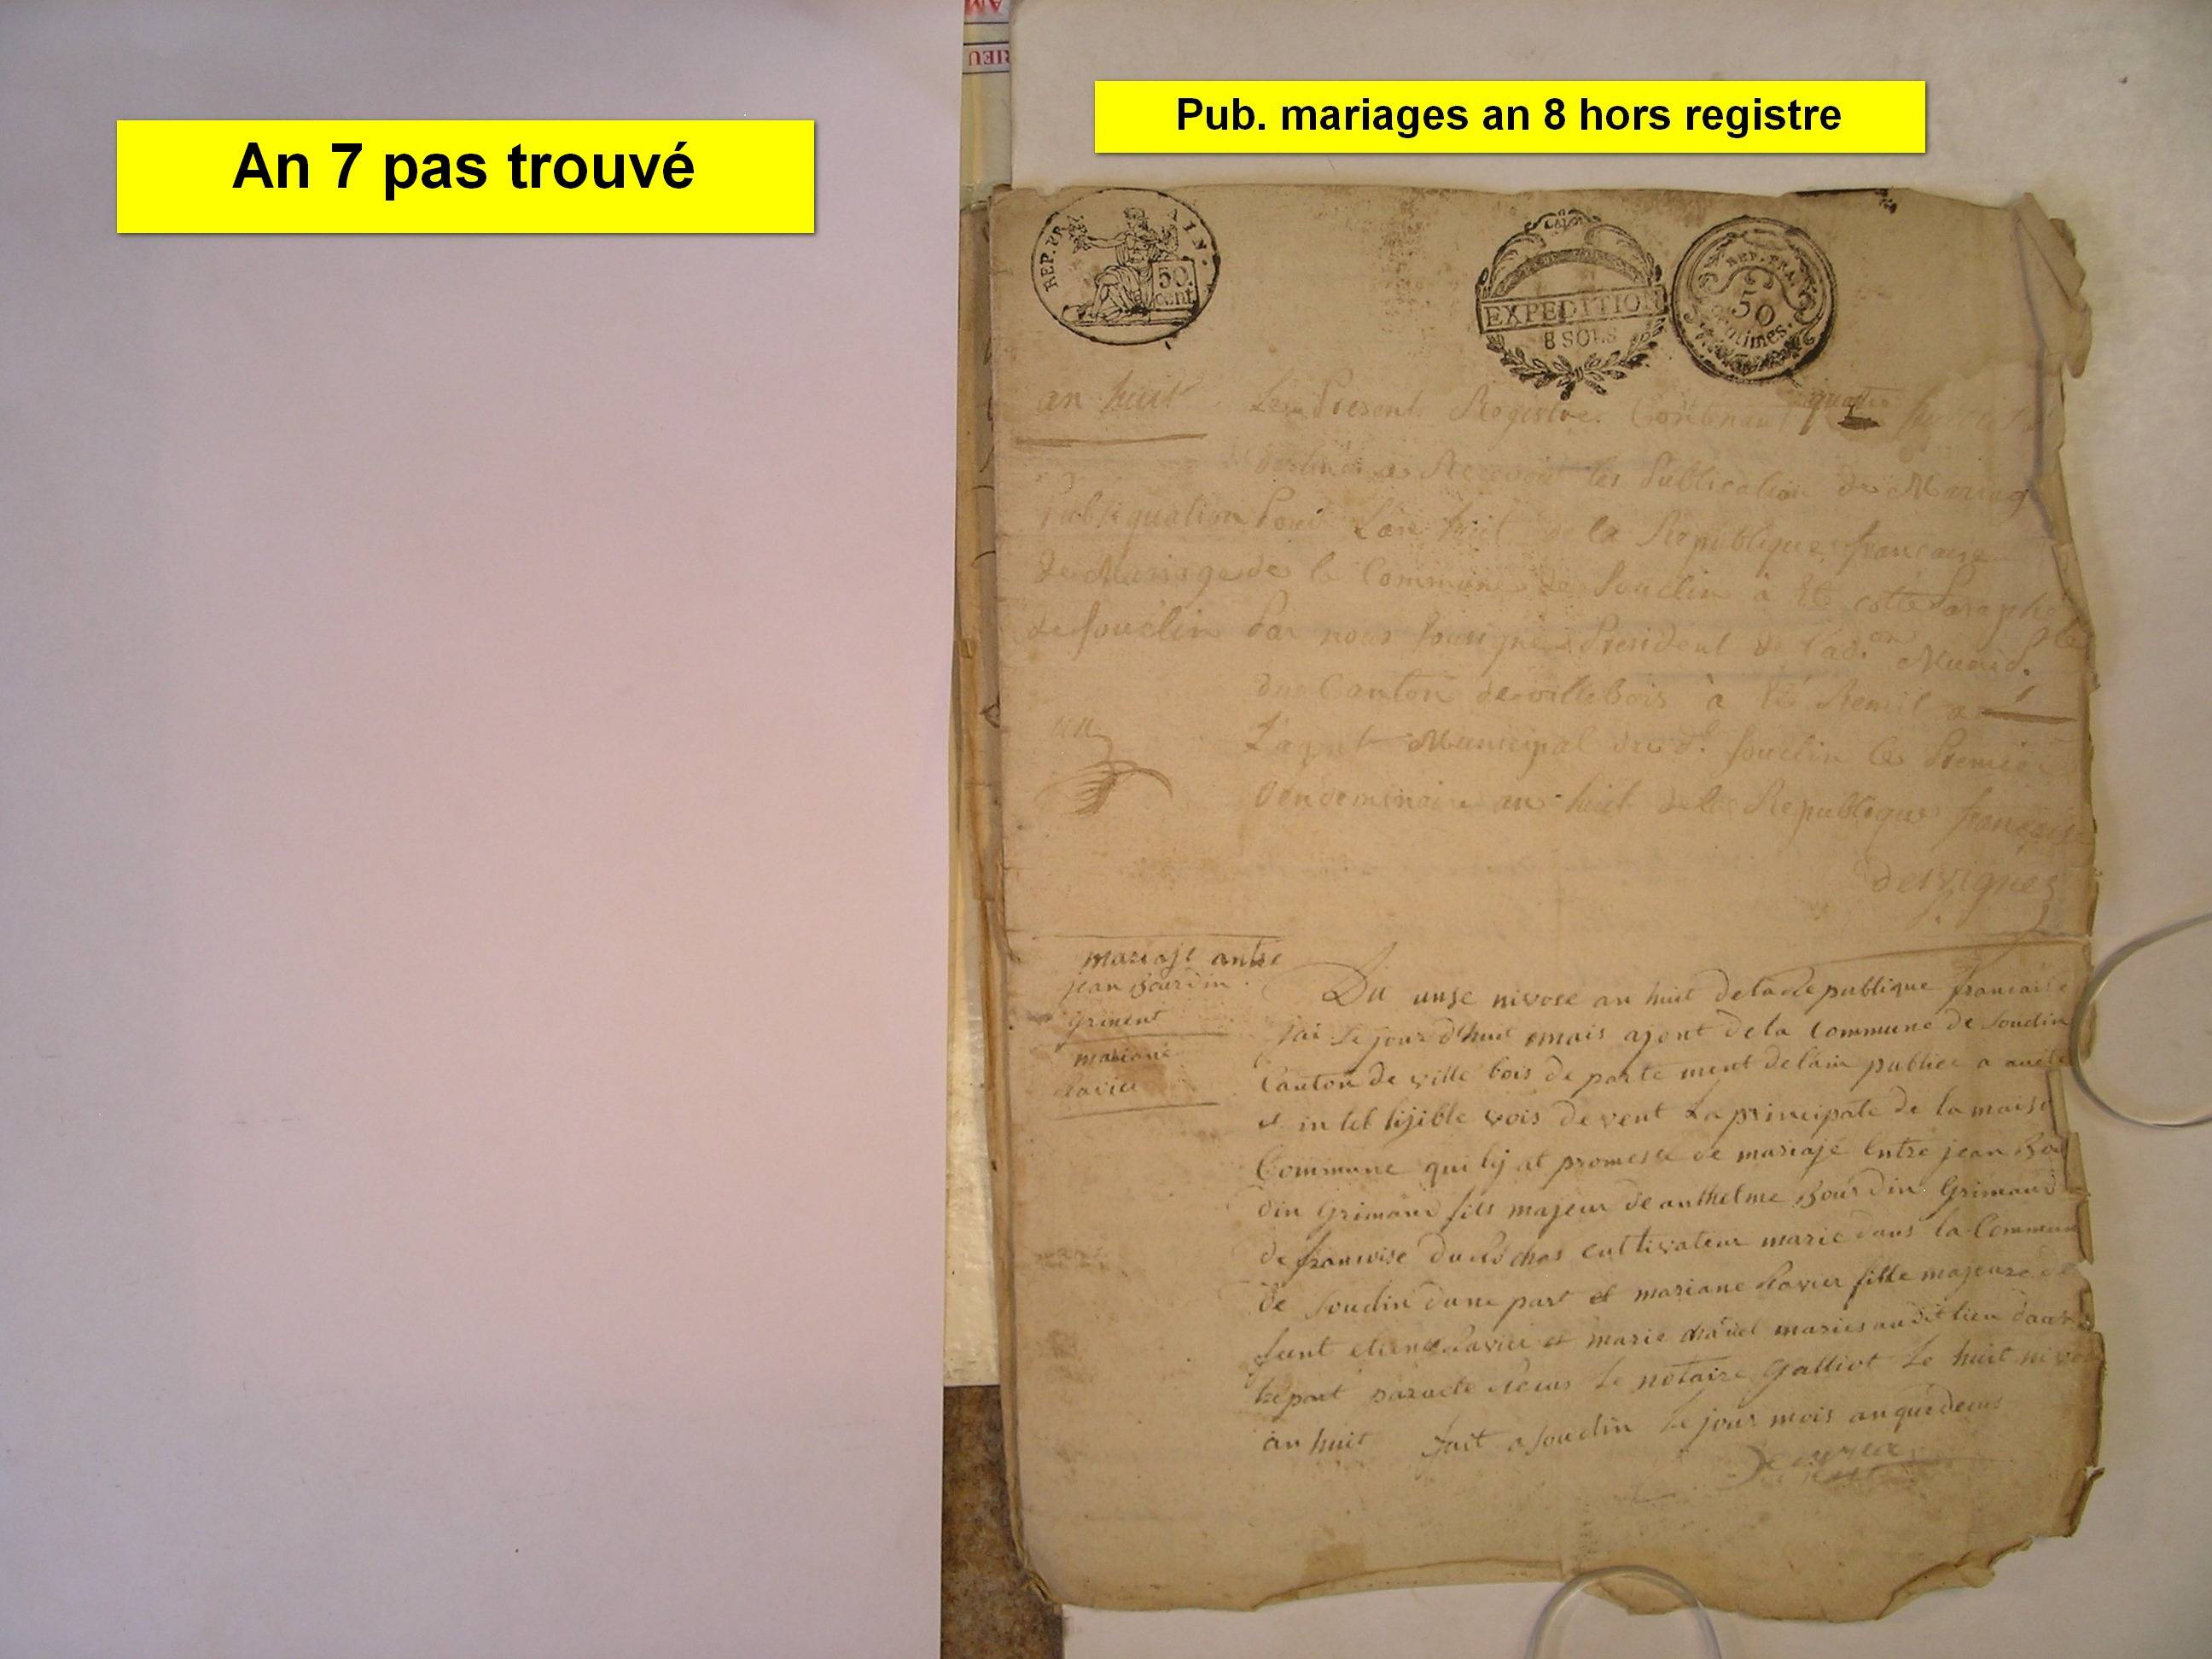 An 7 pas trouvé
Pub. mariages an 8 hors registre
AM
RIEU
REP. FRA
50
cent
EXPEDITION
8 SOLS
REP. FRA
50
centimes
an huit
Publiquation
de Mariage
de souclin
Le Present Registre Contenant quatre
destiné a Recevoir les Publication de Mariag
Pour Lan huit de la Republique francaise
de la Commune de Souclin à Eté cotté Paraphé
Par nous soussigné President de l'ad.on Munid.
du Canton de villebois à Eté Remit a
L'agent Municipal du d.t souclin le Premier
Vendeminaire an huit de la Republique francaise
desvignes
mariaje antre
jean Bourdin
griment
mariane
Ravier
Du unse nivose an huit de la Republique francaise
jai le jour d'huit ajent de la Commune de Souclin
Canton de ville bois de parte ment de lain publiee a
et in tel lijible vois de vent La principale de la maiso
Commune qui lij at promesse de mariaje Entre jean Bou
din Grimaud fils majeur de anthelme Bourdin Grimaud
de franwise cultivateur marie dans la Commune
de Souclin dune part et mariane Ravier fille majeure de
feunt etiene Ravier et marie maries au dit lieu daut
le notaire Galliot Le huit nivo
an huit fait a souclin Le jour mois an que desus